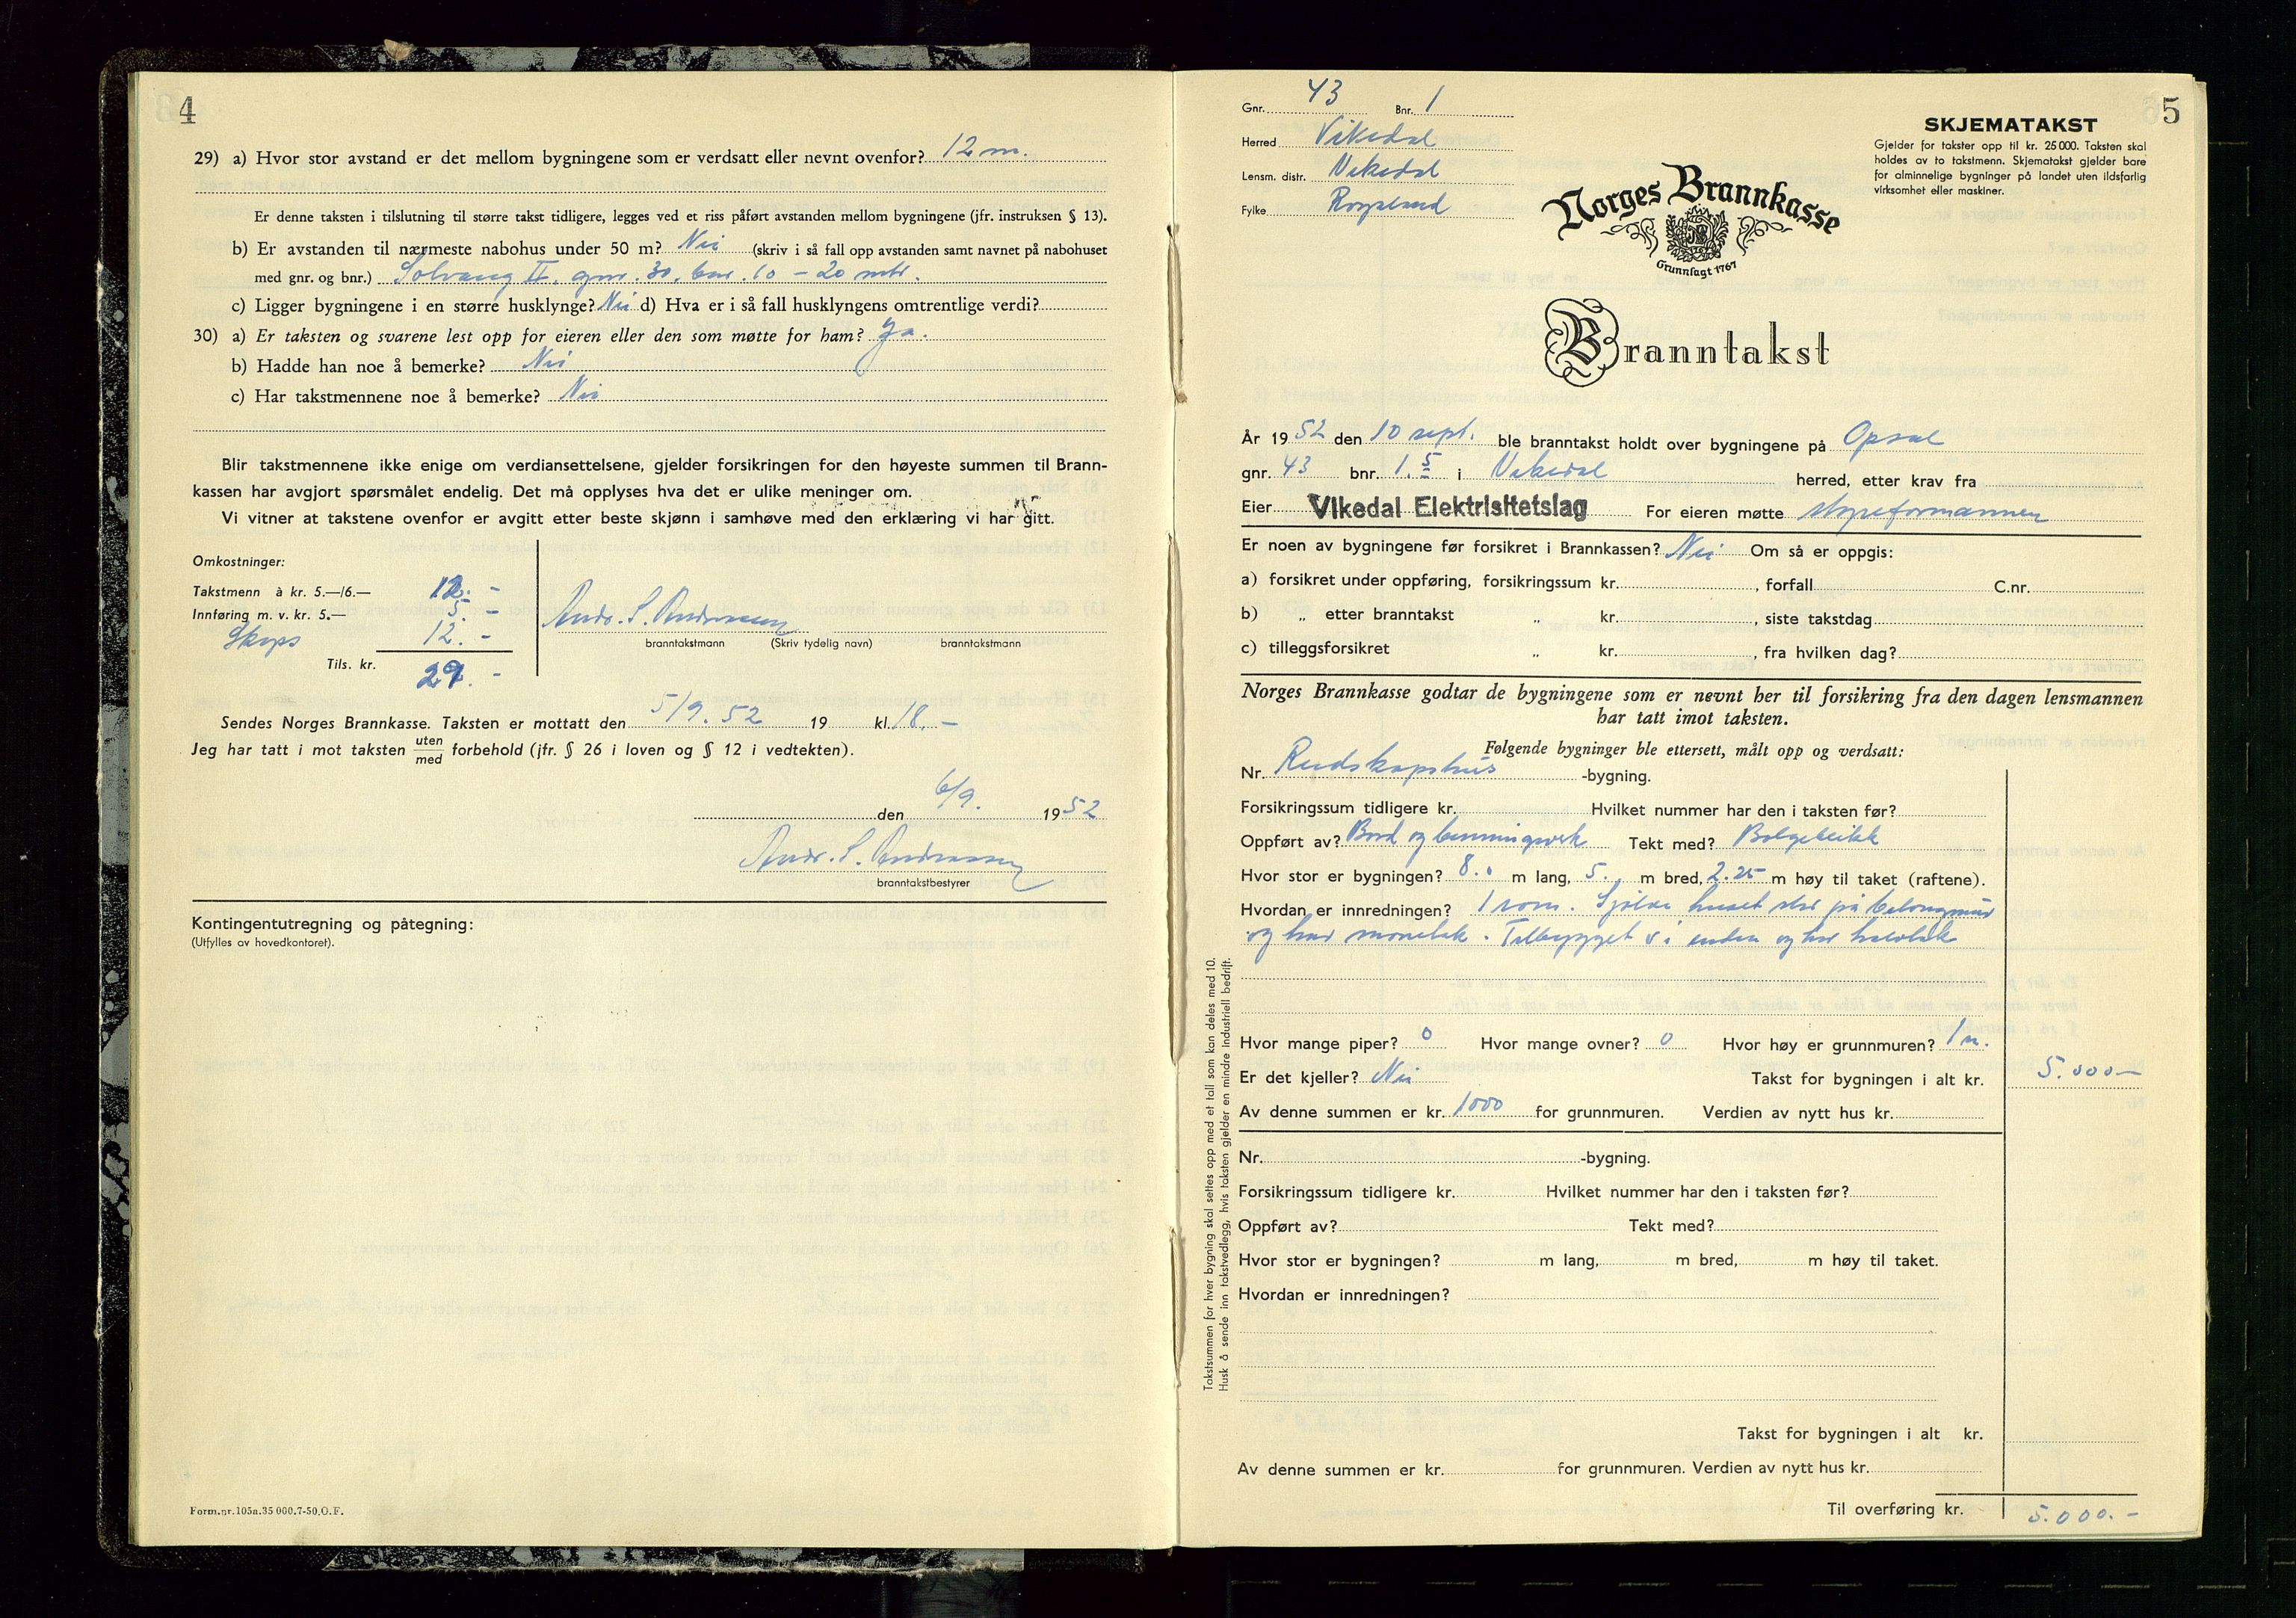 4
29) a) Hvor stor avstand er det mellom bygningene som er verdsatt eller nevnt ovenfor? 12 m.
Er denne taksten i tilslutning til større takst tidligere, legges ved et riss påført avstanden mellom bygningene (jfr. instruksen § 13).
b) Er avstanden til nærmeste nabohus under 50 m? Nei (skriv i så fall opp avstanden samt navnet på nabohuset
med gnr. og bnr.) Solvang II, gnr. 30, bnr. 10 – 20 mtr.
c) Ligger bygningene i en større husklynge? Nei d) Hva er i så fall husklyngens omtrentlige verdi?
30) a) Er taksten og svarene lest opp for eieren eller den som møtte for ham? Ja.
b) Hadde han noe å bemerke? Nei
c) Har takstmennene noe å bemerke? Nei
Blir takstmennene ikke enige om verdiansettelsene, gjelder forsikringen for den høyeste summen til Brann-
kassen har avgjort spørsmålet endelig. Det må opplyses hva det er ulike meninger om.
Vi vitner at takstene ovenfor er avgitt etter beste skjønn i samhøve med den erklæring vi har gitt.
Omkostninger:
Takstmenn à kr. 5.—/6.— 12. -
Innføring m. v. kr. 5.— 5. -
Skyss 12. -
Tils. kr. 29. -
Andr. S. Andreassen
branntakstmann (Skriv tydelig navn) branntakstmann
Sendes Norges Brannkasse. Taksten er mottatt den 5/9. 52 19 kl. 18. –
Jeg har tatt i mot taksten uten/med forbehold (jfr. § 26 i loven og § 12 i vedtekten).
den 6/9. 1952
Andr. S. Andreassen
branntakstbestyrer
Kontingentutregning og påtegning:
(Utfylles av hovedkontoret).
Form.nr.105a.35 000.7-50.O.F.
5
Gnr. 43 Bnr. 1
Herred Vikedal
Lensm. distr. Vikedal
Fylke Rogaland
SKJEMATAKST
Gjelder for takster opp til kr. 25 000. Taksten skal
holdes av to takstmenn. Skjematakst gjelder bare
for alminnelige bygninger på landet uten ildsfarlig
virksomhet eller maskiner.
Norges Brannkasse
Grunnlagt 1767
Branntakst
År 1952 den 10 sept. ble branntakst holdt over bygningene på Opsal
gnr. 43 bnr. 1. 5 i Vikedal herred, etter krav fra
Eier Vikedal Elektrisitetslag For eieren møtte styreformannen
Er noen av bygningene før forsikret i Brannkassen? Nei Om så er oppgis:
a) forsikret under oppføring, forsikringssum kr. , forfall C.nr.
b) „ etter branntakst „ kr. , siste takstdag
c) tilleggsforsikret „ kr. , fra hvilken dag?
Norges Brannkasse godtar de bygningene som er nevnt her til forsikring fra den dagen lensmannen
har tatt imot taksten.
Følgende bygninger ble ettersett, målt opp og verdsatt:
Nr. Redskapshus -bygning.
Forsikringssum tidligere kr. Hvilket nummer har den i taksten før?
Oppført av? Bord og benningverk Tekt med? Bølgeblikk
Hvor stor er bygningen? 8.0 m lang, 5. m bred, 2.25 m høy til taket (raftene).
Hvordan er innredningen? 1 rom. Sjølve huset står på betongmur
og har monetak. Tilbygget i enden og har halvtak
Hvor mange piper? 0 Hvor mange ovner? 0 Hvor høy er grunnmuren? 1 m.
Er det kjeller? Nei Takst for bygningen i alt kr. 5.000–
Av denne summen er kr. 1000 for grunnmuren. Verdien av nytt hus kr.
Nr. -bygning.
Forsikringssum tidligere kr. Hvilket nummer har den i taksten før?
Oppført av? Tekt med?
Hvor stor er bygningen? m lang, m bred, m høy til taket.
Hvordan er innredningen?
Takst for bygningen i alt kr.
Av denne summen er kr. for grunnmuren. Verdien av nytt hus kr.
Til overføring kr. 5.000.-
Takstsummen for hver bygning skal settes opp med et tall som kan deles med 10.
Husk å sende inn takstvedlegg, hvis taksten gjelder en mindre industriell bedrift.